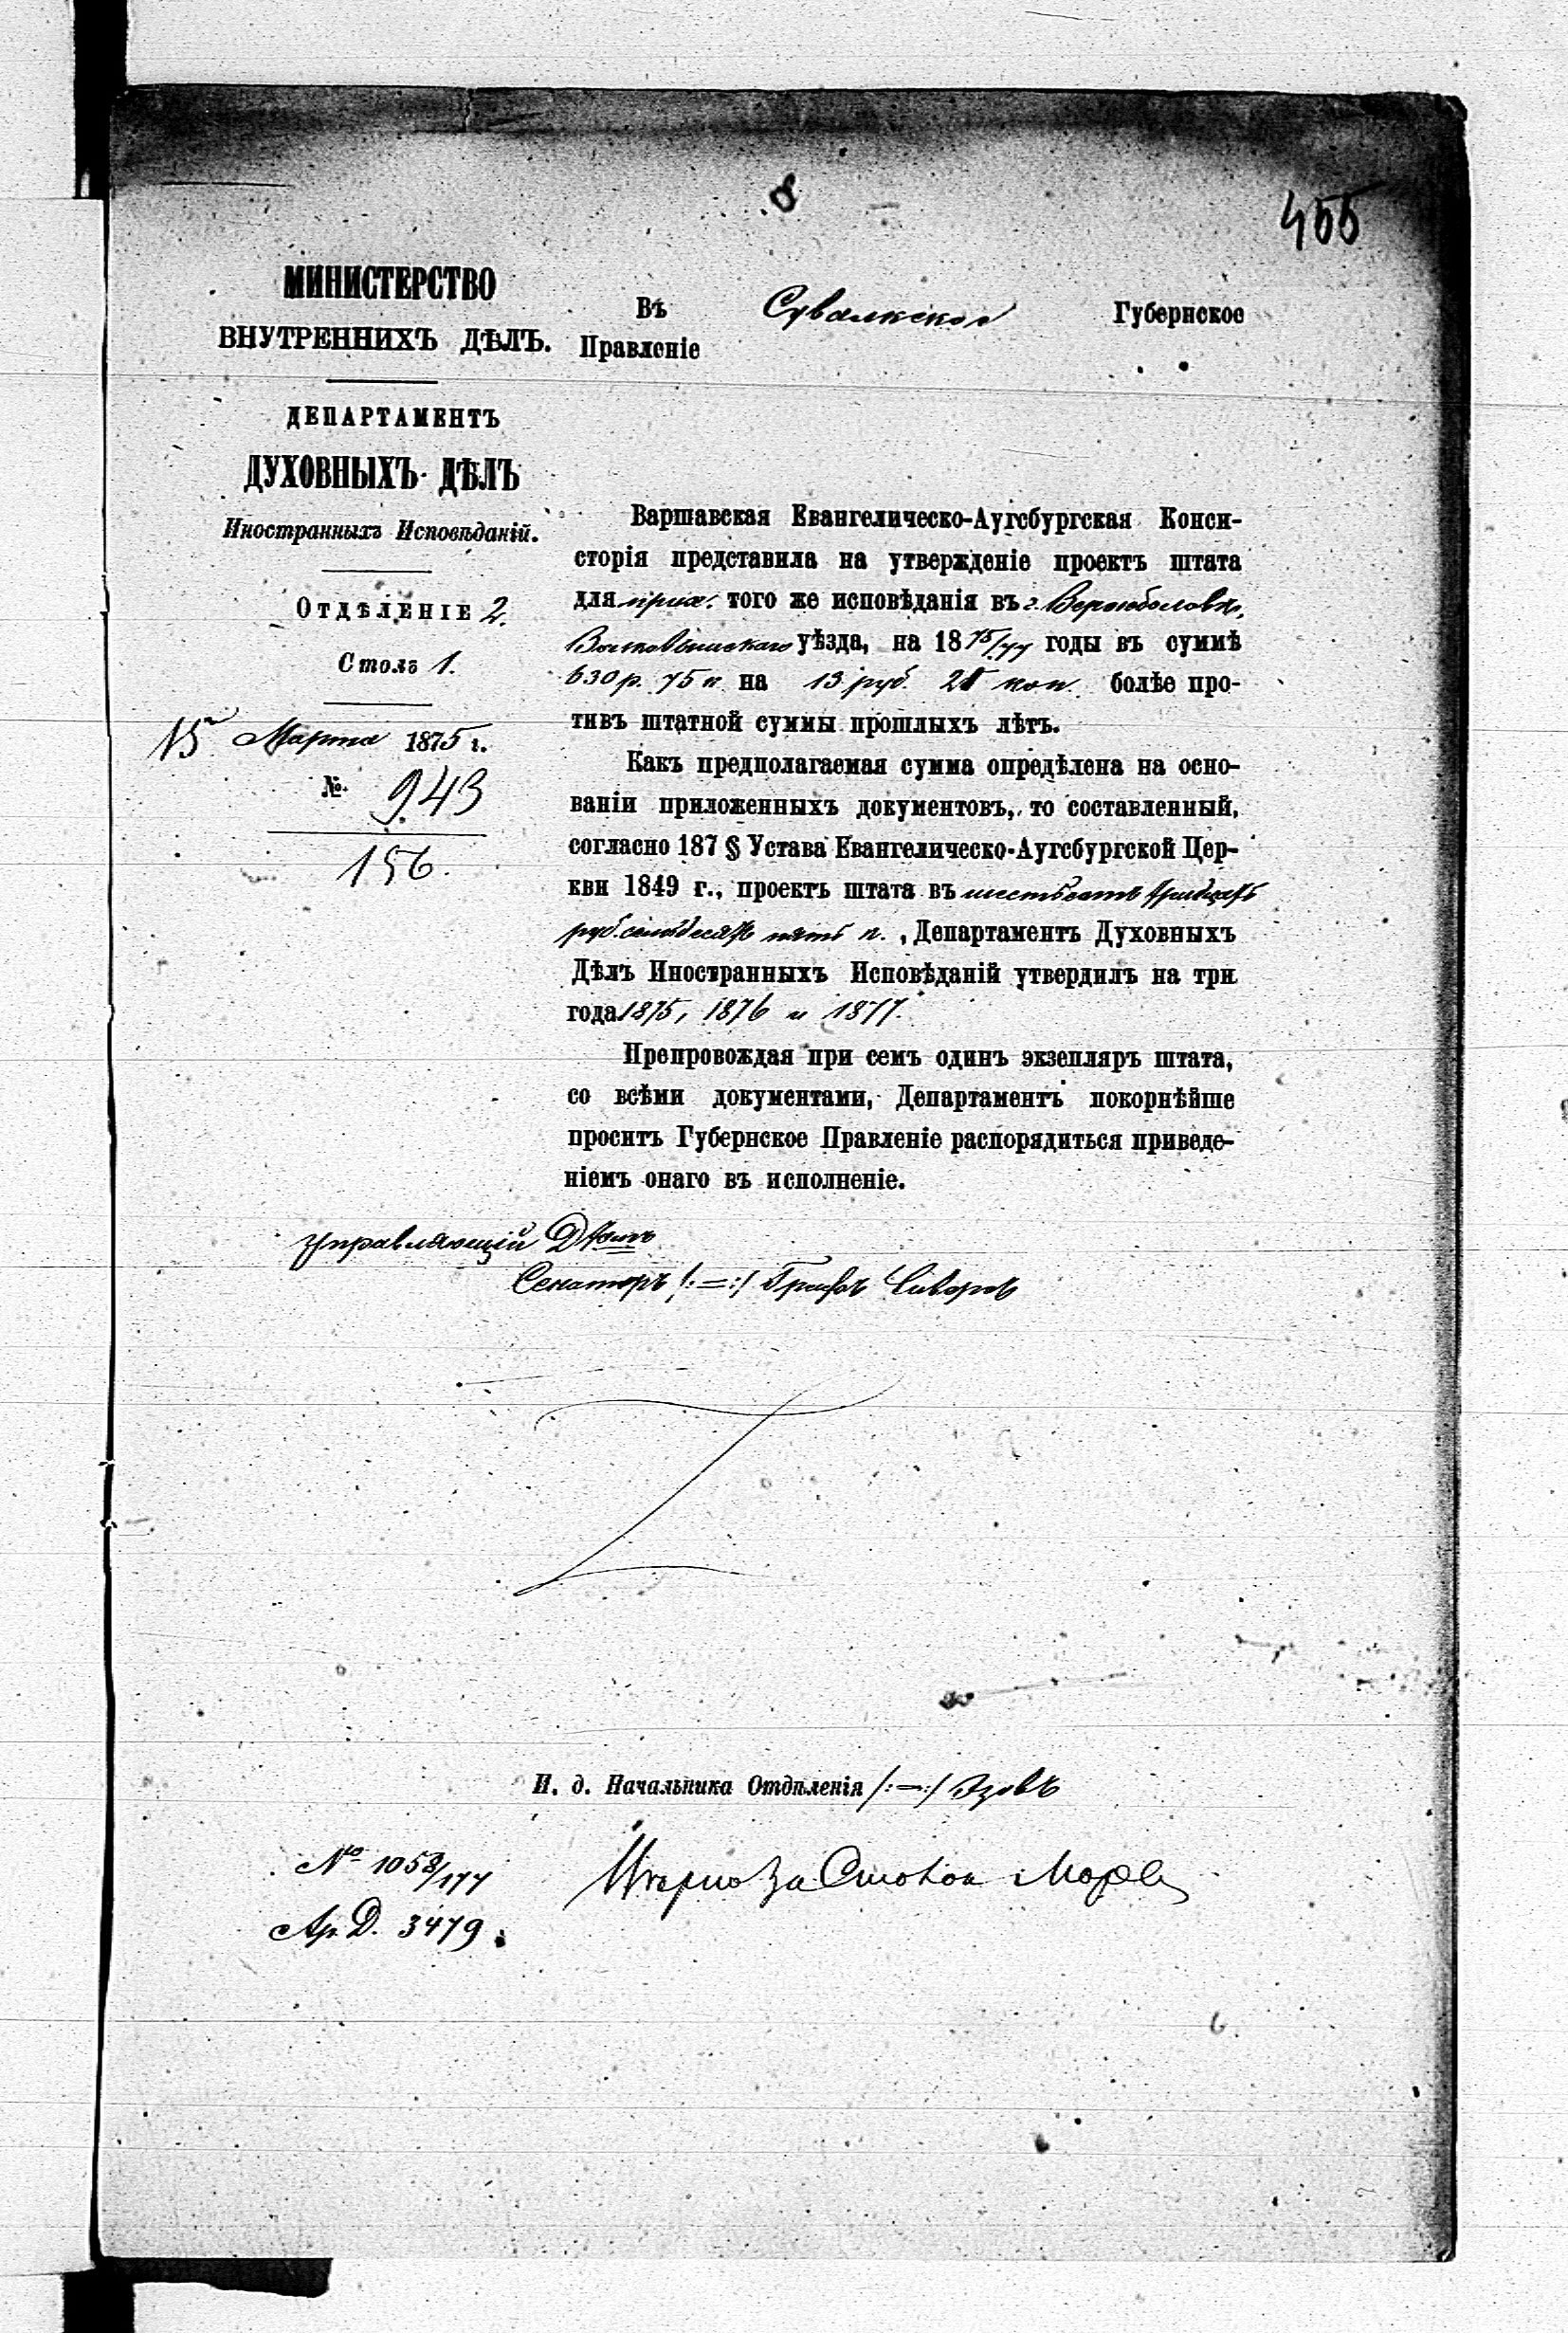 8
455
МИНИСТЕРСТВО
ВНУТРЕННИХЪ ДѢЛЪ.
ДЕПАРТАМЕНТЪ
ДУХОВНЫХЪ ДѢЛЪ
Иностранныхъ Исповѣданій.
ОТДѢЛЕНІЕ 2.
Столъ 1.
15 Марта 1875 г.
№ 943
156.
Въ Сувалкское Губернское
Правленіе
Варшавская Евангелическо-Аугсбургская Конси-
сторія представила на утвержденіе проектъ штата
для прих. того же исповѣданія въ г. Вержболовѣ,
Волковышскаго уѣзда, на 1875/77 годы въ суммѣ
630 р. 75 к. на 13 руб. коп. болѣе про-
тивъ штатной суммы прошлыхъ лѣтъ.
Какъ предполагаемая сумма опредѣлена на осно-
ваніи приложенныхъ документовъ, то составленный,
согласно 187 § Устава Евангелическо-Аугсбургской Цер-
кви 1849 г., проектъ штата въ шестьсотъ тридцать
руб. семьдесятъ пять к., Департаментъ Духовныхъ
Дѣлъ Иностранныхъ Исповѣданій утвердилъ на три
года 1875, 1876 и 1877.
Препровождая при семъ одинъ экземпляръ штата,
со всѣми документами, Департаментъ покорнѣйше
проситъ Губернское Правленіе распорядиться приведе-
ніемъ онаго въ исполненіе.
Управляющій Д
Сенаторъ /:=:/ Графъ Сиверсъ
И. д. Начальника Отдѣленія /:=:/ Эзовъ
№ 1058/177
Ар. Д. 3479.